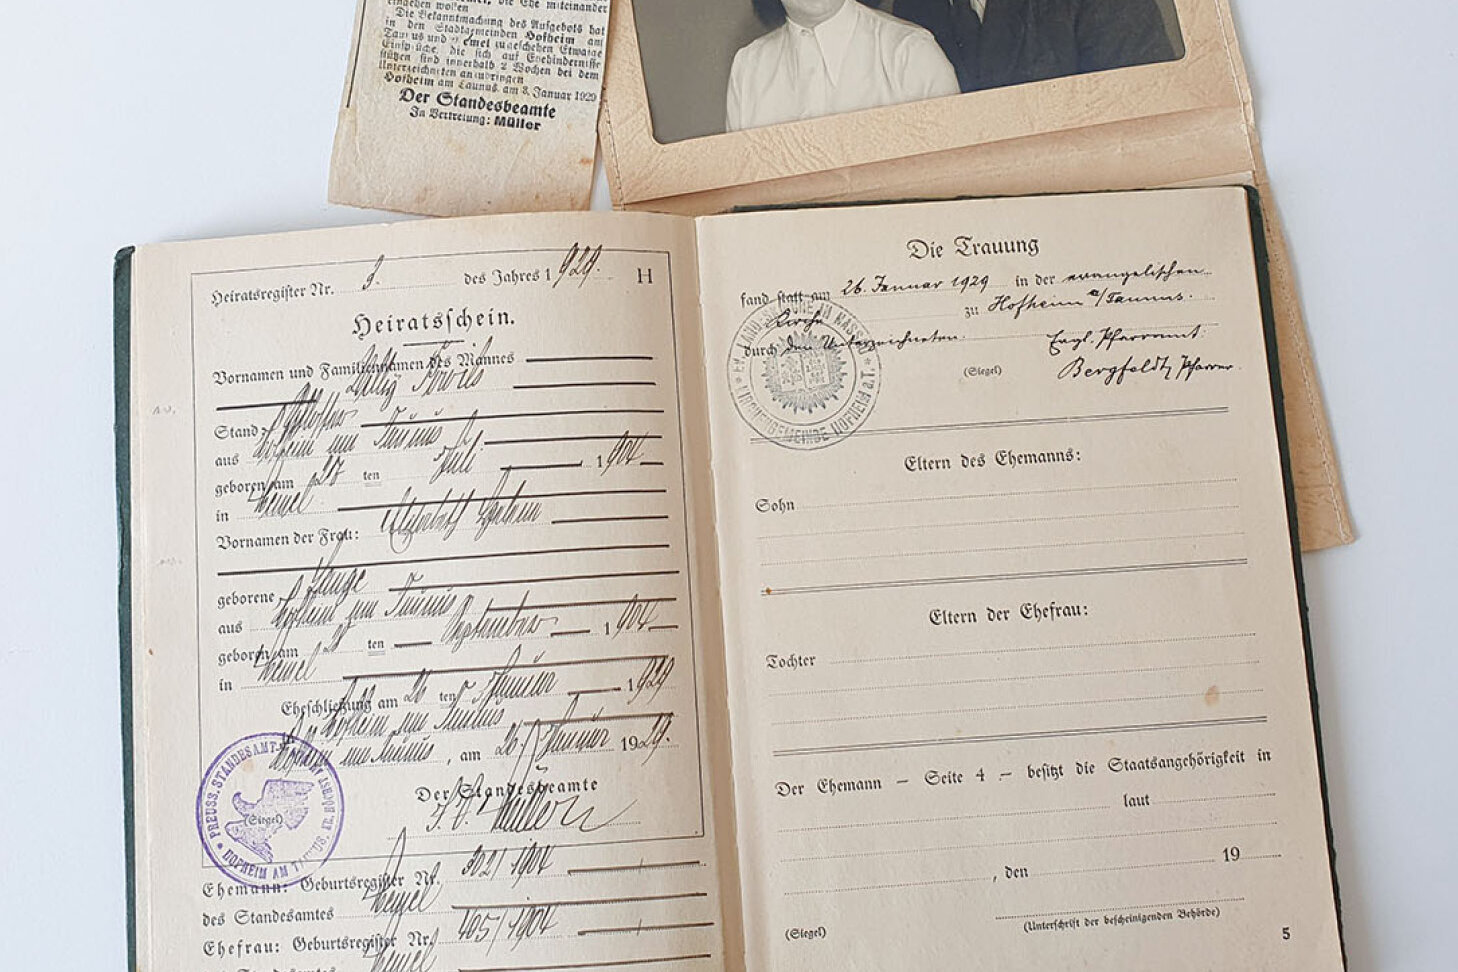 die Ehe miteinander
eingehen wollen
Die Bekanntmachung des Aufgebots hat
in den Stadtgemeinden Hofheim am
Taunus und Memel zu geschehen Etwaige
Einsprüche, die sich auf Ehehindernisse
stützen sind innerhalb 2 Wochen bei dem
Unterzeichneten anzubringen
Hofheim am Taunus am 8. Januar 1929
Der Standesbeamte
In Vertretung: Müller
Heiratsregister Nr. 3. des Jahres 1929. H
Heiratsschein.
Vornamen und Familiennamen des Mannes
Stand:
aus Hofheim am Taunus
geboren am ten Juli 1904
in Memel
Vornamen der Frau: Elisabeth
geborene
aus Hofheim am Taunus
geboren am ten September 1904
in Memel
Eheschließung am 26 ten Januar 1929
in Hofheim am Taunus
Hofheim am Taunus, am 26. Januar 1929.
Der Standesbeamte
I. V. Müller
(Siegel)
PREUSS. STANDESAMT
HOFHEIM AM TAUNUS
Ehemann: Geburtsregister Nr. 302/1904
des Standesamtes Memel
Ehefrau: Geburtsregister Nr. 405/1904
Memel
Die Trauung
fand statt am 26. Januar 1929 in der evangelischen
Kirche zu Hofheim a/Taunus.
durch den Unterzeichneten.
Evgl. Pfarramt.
(Siegel) Bergfeldt, Pfarrer.
KIRCHENGEMEINDE HOFHEIM a.T.
Eltern des Ehemanns:
Sohn
Eltern der Ehefrau:
Tochter
Der Ehemann – Seite 4 – besitzt die Staatsangehörigkeit in
laut
, den 19
(Unterschrift der bescheinigenden Behörde)
(Siegel)
5